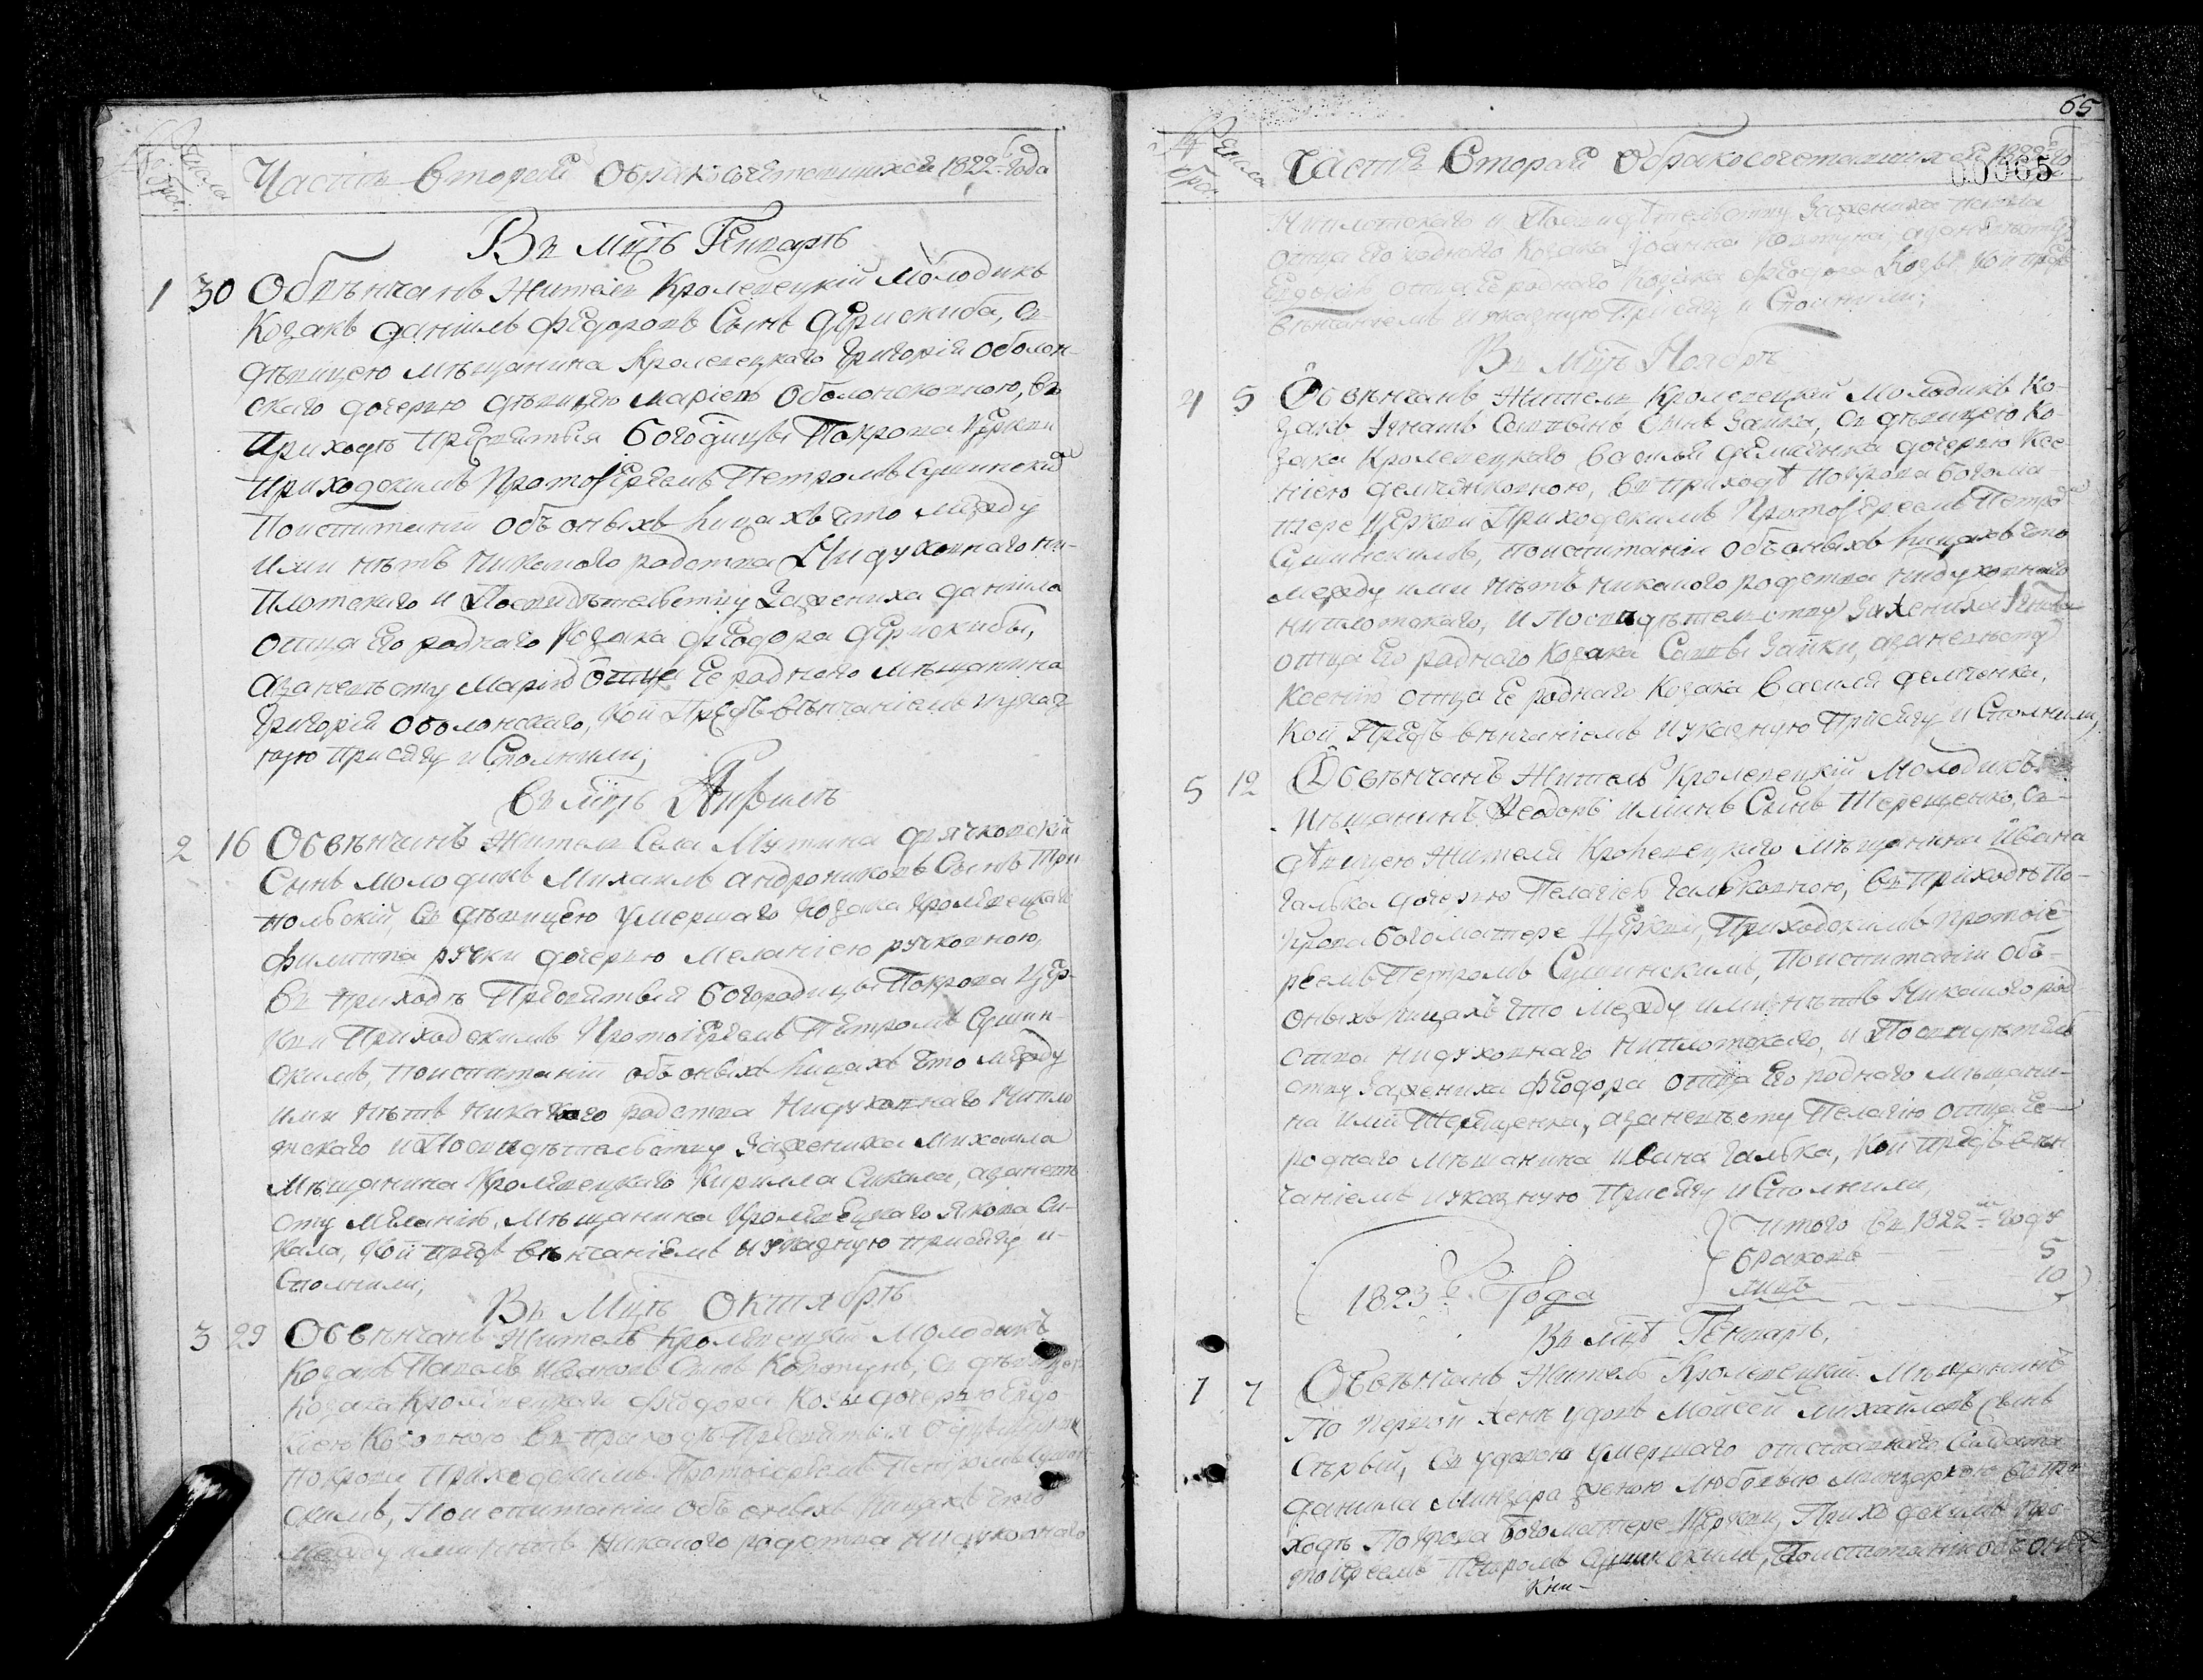 № брà. Числа
Часть вторая О бракосочетавшихся 1822го года
Въ мцѣ Генварѣ
1 30 Обвѣнчанъ Житель Кролевецкій молодикъ
Козакъ Даніилъ Федоровъ Сынъ Дерискиба, съ
дѣвицею мѣщанина Кролевецкаго Григорія Оболон-
скаго дочерью дѣвицею Маріею Оболонсковною, въ
приходѣ Пресвятыя Богодицы Покрова Церкви
Приходскимъ Протоіереемъ Петромъ Сушинскимъ
Поиспитаніи объ оныхъ лицахъ что между
ими нѣтъ никакого родства Нидуховного ни-
плотского и Посвидѣтельству Заженика Даніила
отца Его родного Козака Федора Дерискибы,
азаневѣсту Марію отца Ее родного мѣщанина
Григорія Оболонскаго, Кои Предъ вѣнчаніемъ иуказ
ную присягу и Сполнили;
въ мцѣ Апрѣлѣ
2 16 Обвѣнчанъ Житель Села Мутина дячковскій
Сынъ молодикъ Михаилъ Андрониковъ Сынъ Три
польскій, съ дѣвицею умершаго Козака Кролевецкаго
Филиппа Ручки дочерью Меланіею Ручковною,
въ приходѣ Пресвятыя Богородицы Покрова Цер-
кви Приходскимъ Протоіереемъ Петромъ Сушин-
скимъ, поиспитаніи объ оныхъ лицахъ что между
ими нѣтъ никакого родства Нидуховнаго Нипло
тскаго и Посвидѣтельству Заженика Михаила
мѣщанина Кролевецкаго Кирилла Сикала, азаневѣ
сту Меланію, мѣщанина Кролевецкаго Якова Си-
кала, Кои предъ вѣнчаніемъ иуказную присягу и-
Сполнили;
Въ Мцѣ Октябрѣ
3 29 Обвѣнчанъ Житель Кролевецкій Молодикъ
Козакъ Павелъ Ивановъ Сынъ Ковтунъ, съ дѣвицею
Козака Кролевецкаго Федора Козы дочерью Евдо-
кіею Козовною въ приходѣ Пресвятыя
покрова Приходскимъ Протоіереемъ Петромъ Сушин-
скимъ, Поиспитаніи объ оныхъ лицахъ что
между ими нѣтъ никакого родства нидуховнаго
65
№ брà. Числа
Часть Вторая О бракосочетавшихся 1822го
00065
Ниплотскаго и Посвидѣтельству Заженика Павла
отца Его родного Козака Иоанна Ковтуна, азаневѣсту
Евдокію отца Ее родного Козака Федора Козы, Кои предъ
вѣнчаніемъ иуказную Присягу и Сполнили;
Въ мцѣ Ноябрѣ
4 5 Обвѣнчанъ Житель Кролевецкій Молодикъ Ко-
закъ Игнатъ Саввынъ Сынъ Заика, съ дѣвицею Ко-
зака Кролевецкаго Василія Демченка дочерью Ксе-
ніею Демченковною, въ приходѣ Покрова Богома-
тере Церкви Приходскимъ Протоіереемъ Петромъ
Сушинскимъ, поиспитаніи объ оныхъ лицахъ что
между ими нѣтъ никакого родства нидуховнаго
ниплотскаго, и Посвидѣтельству Заженика Игната
отца Его родного Козака Саввы Заики, азаневѣсту
Ксенію отца Ее родного Козака Василя Демченка,
Кои Предъ вѣнчаніемъ иуказную Присягу и Сполнили;
5 12 Обвѣнчанъ Житель Кролевецкій Молодикъ
Мѣщанинъ Феодоръ Илиинъ Сынъ Терещенко, съ-
дѣвицею Жителя Кролевецкаго мѣщанина Ивана
Галька дочерью Пелагіею Гальковною, въ приходѣ По-
крова Богоматере Церкви, Приходскимъ Протоіе-
реемъ Петромъ Сушинскимъ, Поиспитаніи объ-
оныхъ лицахъ что между ими нѣтъ Никакого род
ства нидуховнаго ниплотскаго, и Посвидѣтель
ству Заженика Федора отца Его родного мѣщани-
на Иліи Терещенка, азаневѣсту Пелагію отца Ее-
родного мѣщанина Ивана Галька, Кои предъ вѣн
чаніемъ иуказную Присягу и Сполнили,
Итого въ 1822м году
браковъ 5
лицъ 10
1823го Года
Въ мцѣ Генварѣ.
1 7 Обвѣнчанъ Житель Кролевецкій Мѣщанинъ
По первой женѣ удовъ Мойсей Михайловъ Сынъ
Сѣрый, съ удовою умершаго отставнаго Салдата
Данила Минзара женою Любовью Минзаркою въ при
ходѣ Покрова Богоматере Церкви, Приходскимъ Про
тоіереемъ Петромъ Сушинскимъ, Поиспитаніи объ оныхъ